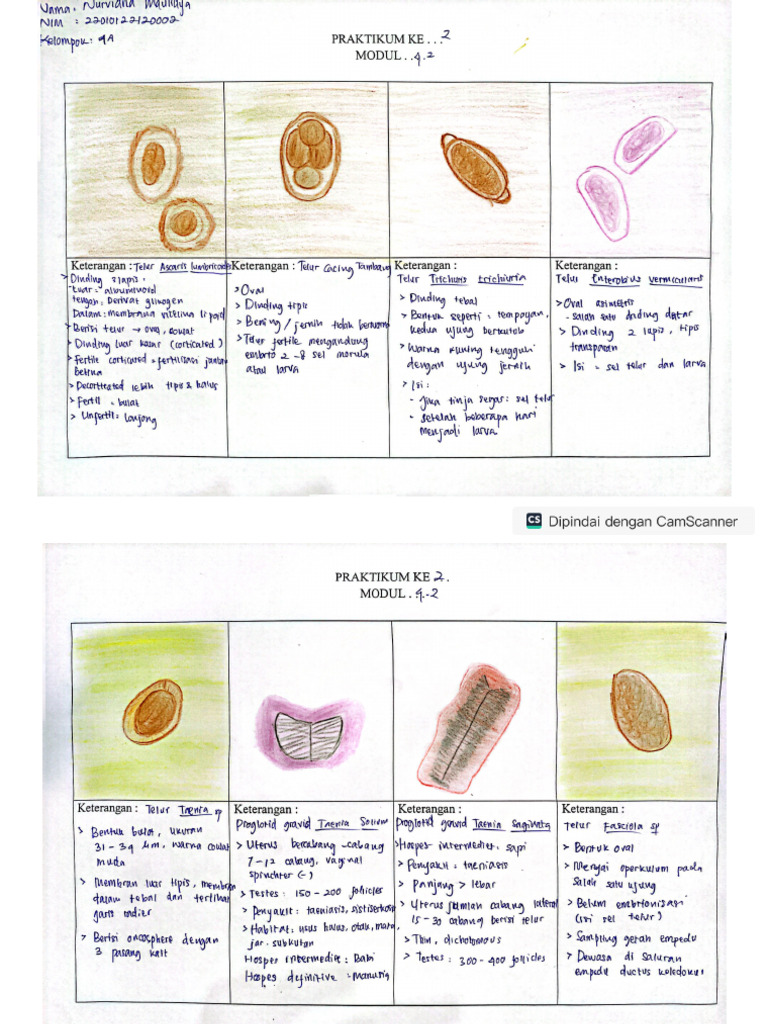 Nama : Nurviana Maulidya
NIM : 22010122120002
Kelompok : 9A
PRAKTIKUM KE . . . 2
MODUL . . 4.2
Keterangan : Telur Ascaris lumbricoides
> Dinding 3 lapis :
Luar : albuminoid
tengah : Derivat glikogen
Dalam : membrana vitelina lipoid
> Berisi telur → oval, bulat
> Dinding luar kasar (corticated)
> Fertile corticated = fertilisasi jantan
betina
> Decorticated lebih tipis & halus
> Fertil = bulat
> Unfertil = lonjong
Keterangan : Telur Cacing Tambang
> Oval
> Dinding tipis
> Bening / jernih tidak berwarna
> Telur fertile mengandung
embrio 2 - 8 sel morula
atau larva
Keterangan :
Telur Trichuris trichiuria
> Dinding tebal
> Bentuk seperti : tempayan,
kedua ujung bertutup
> Warna kuning tengguli
dengan ujung jernih
> Isi :
- Jika tinja segar : sel telur
- setelah beberapa hari
menjadi larva
Keterangan :
Telur Enterobius vermicularis
> Oval asimetris
- salah satu dinding datar
> Dinding 2 lapis, tipis
transparan
> Isi = sel telur dan larva
CS Dipindai dengan CamScanner
PRAKTIKUM KE 2.
MODUL . 4.2
Keterangan : Telur Taenia sp
> Bentuk bulat, ukuran
31 - 34 µm, warna coklat
muda
> Membran luar tipis, membran
dalam tebal dan terlihat
garis radier
> Berisi oncosphere dengan
3 pasang kait
Keterangan :
Proglotid gravid Taenia Solium
> Uterus bercabang-cabang
7 - 12 cabang, vaginal
sprinchter (-)
> Testes : 150 - 200 follicles
> Penyakit : taeniasis, sistiserkosis
> Habitat : usus halus, otak, mata,
jar. subkutan
Hospes intermediet : Babi
Hospes definitive : Manusia
Keterangan :
Proglotid gravid Taenia Saginata
> Hospes intermedier : sapi
> Penyakit : taeniasis
> Panjang > lebar
> Uterus jumlah cabang lateral
15 - 30 cabang berisi telur
> Thin, dichotomous
> Testes : 300 - 400 follicles
Keterangan :
Telur Fasciola sp
> Bentuk oval
> Mempunyai operkulum pada
salah satu ujung
> Belum embrionisasi
(isi sel telur)
> Sampling getah empedu
> Dewasa di saluran
empedu ductus koledokus